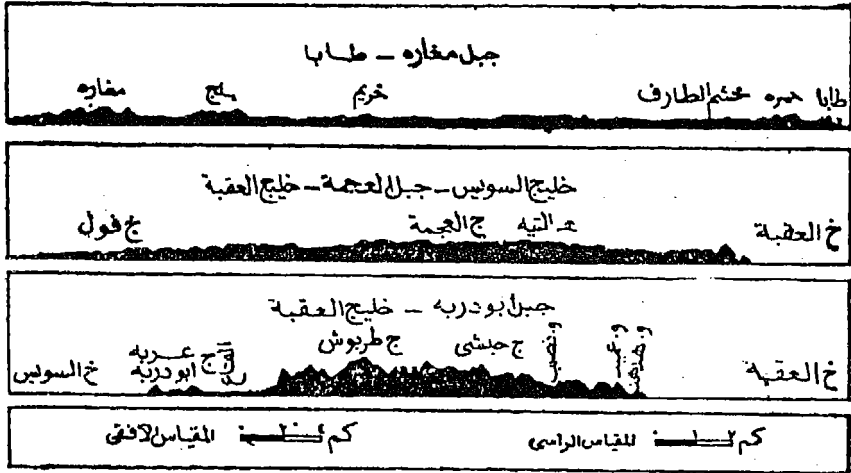 جبل مغاره – طابا
طابا حمره مخشم الطارف خريم يلج مغاره
خليج السويس – جبل العجمة – خليج العقبة
خ العقبة هـ التيه ج العجمة ج فول
جبل ابودربه – خليج العقبة
خ العقبة و نصب ج حبشى ج طربوش القاع ج عربه ابودربه خ السويس
كم ٢ ١ المقياس الراسى كم ٤ ٢ المقياس الافقى